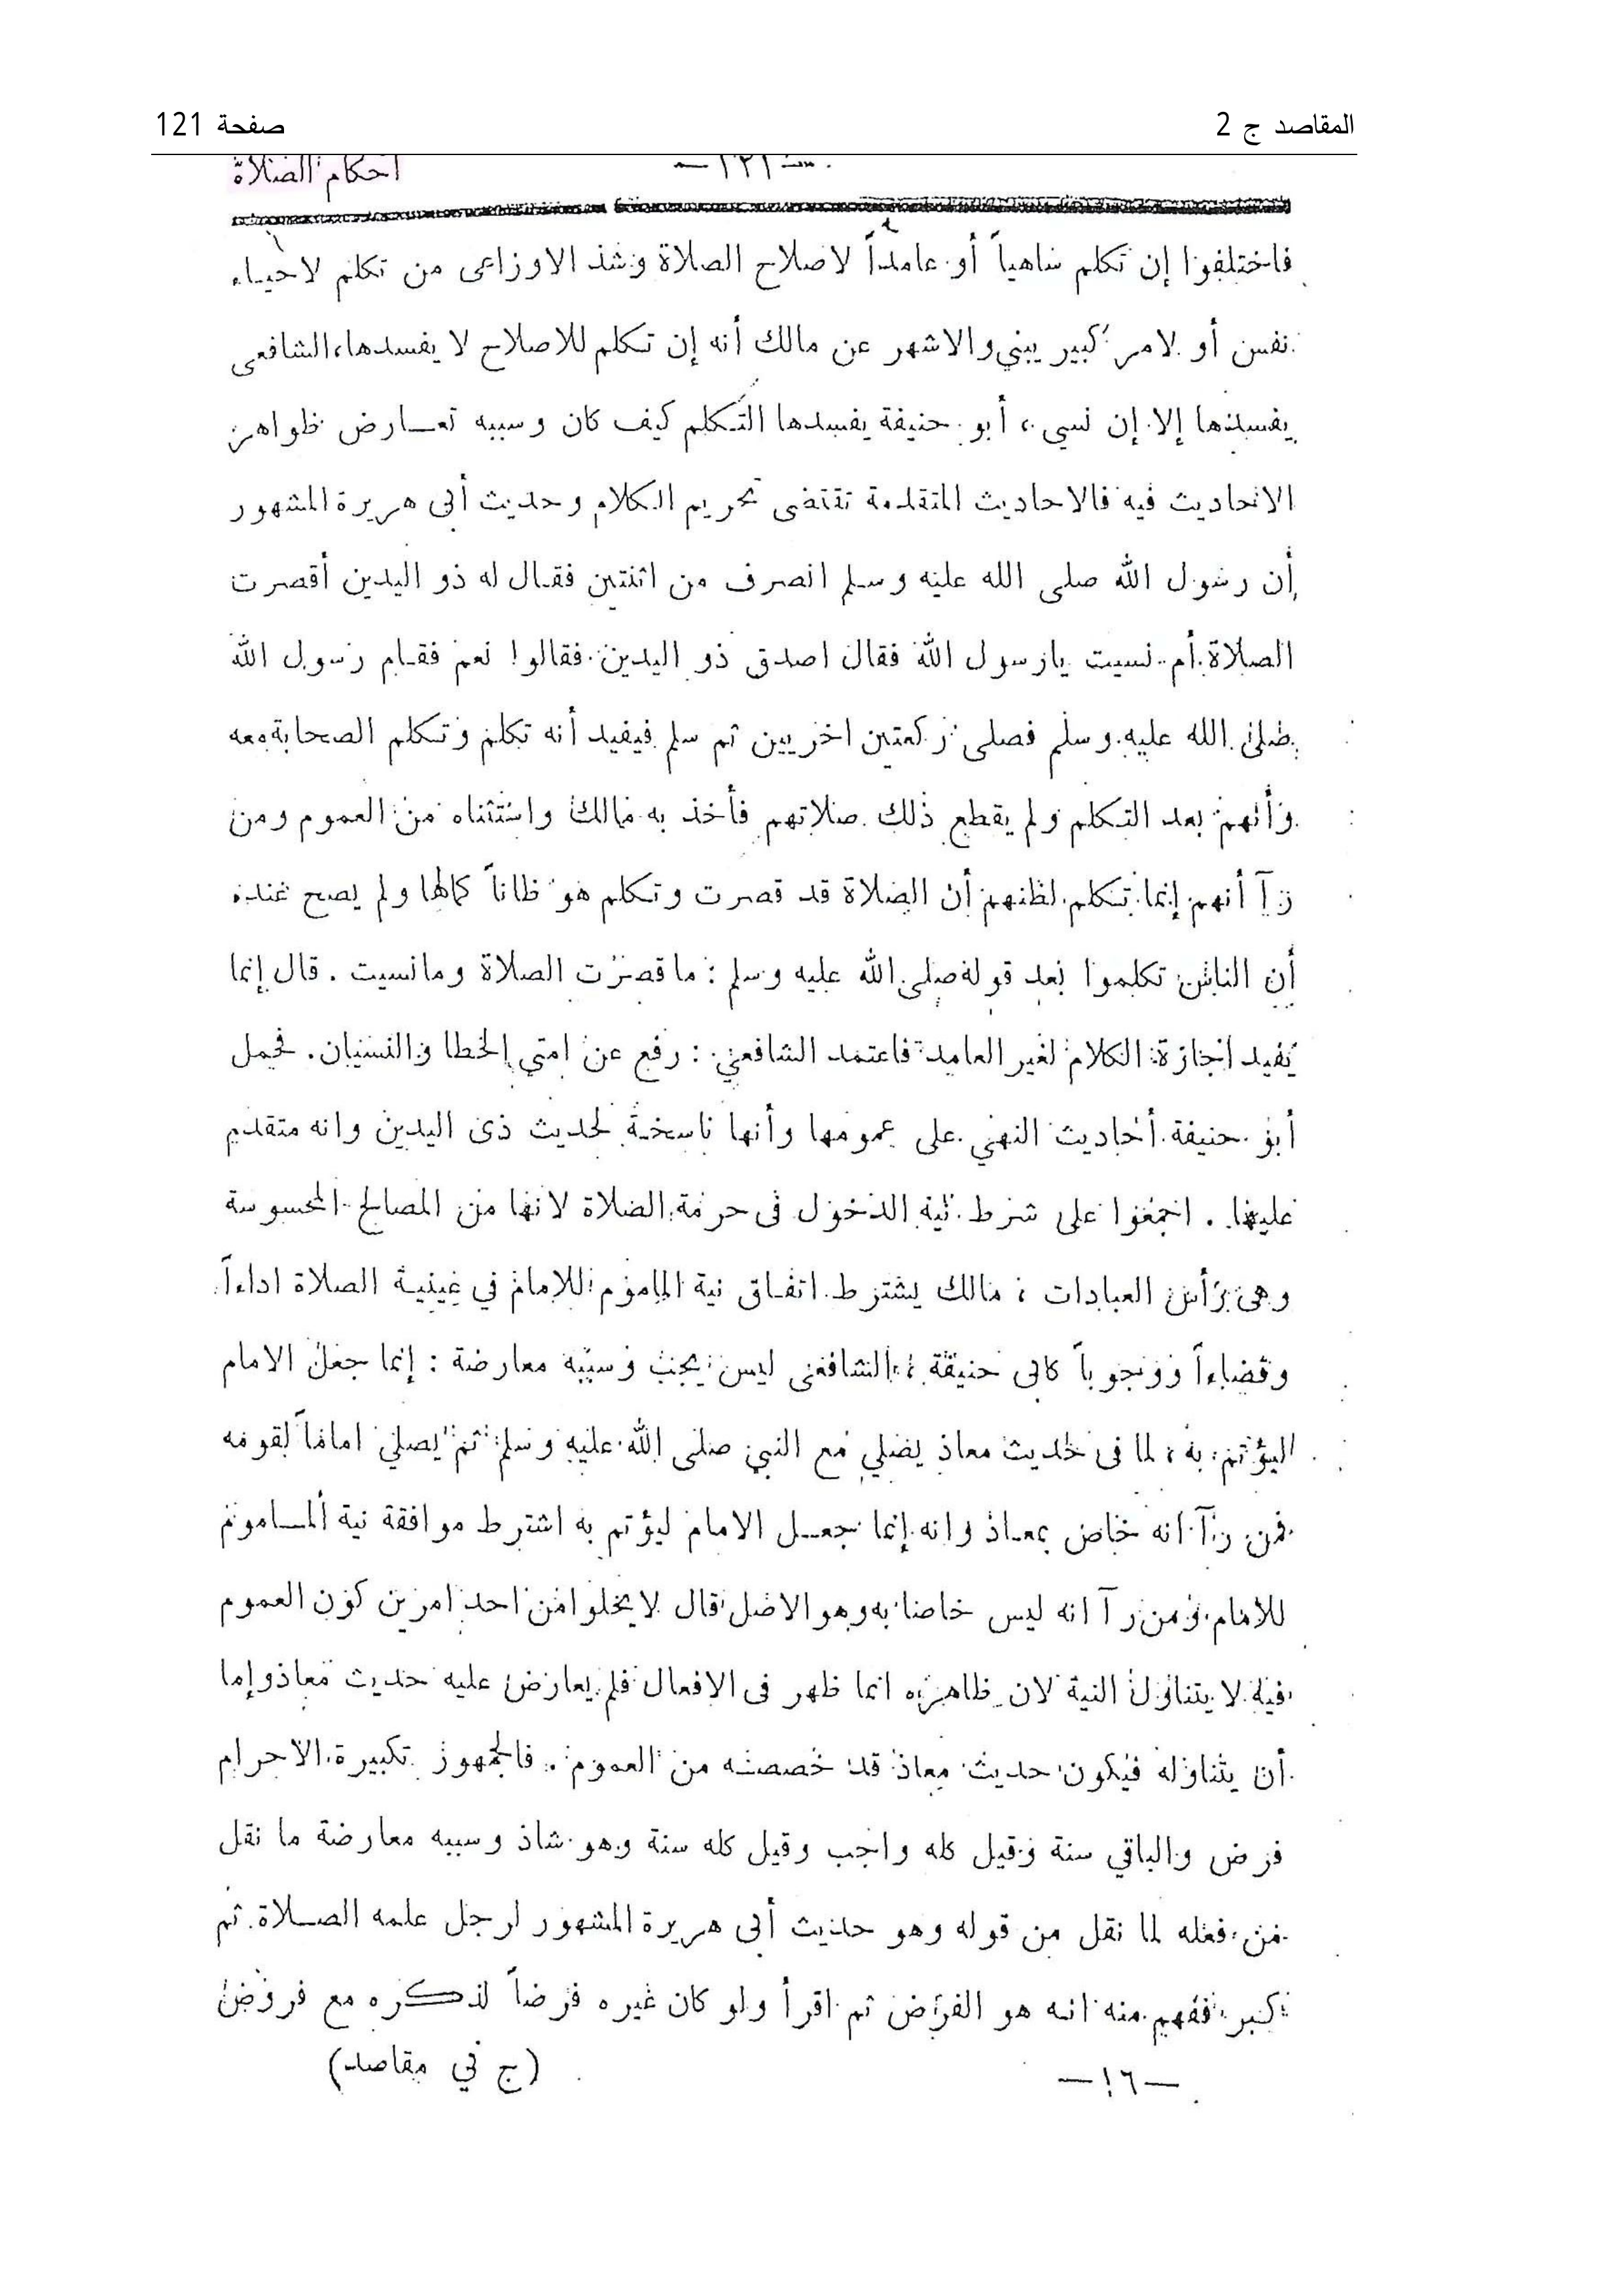 المقاصد ج 2
صفحة 121
— ١٢١ —
أحكام الصلاة
فاختلفوا إن تكلم ساهياً أو عامداً لاصلاح الصلاة وشذ الاوزاعى من تكلم لاحياء
نفس أو لامر كبير يبني والاشهر عن مالك أنه إن تكلم للاصلاح لا يفسدها، الشافعى
يفسدها إلا إن نسي، أبو حنيفة يفسدها التكلم كيف كان وسببه تعارض ظواهر
الاحاديث فيه فالاحاديث المتقدمة تقتضى تحريم الكلام وحديث أبى هريرة المشهور
أن رسول الله صلى الله عليه وسلم انصرف من اثنتين فقال له ذو اليدين أقصرت
الصلاة أم نسيت يارسول الله فقال اصدق ذو اليدين فقالوا نعم فقام رسول الله
صلى الله عليه وسلم فصلى ركعتين اخريين ثم سلم فيفيد أنه تكلم وتكلم الصحابة معه
وأنهم بعد التكلم ولم يقطع ذلك صلاتهم فأخذ به مالك واستثناه من العموم ومن
رآ أنهم إنما تكلم لظنهم أن الصلاة قد قصرت وتكلم هو ظاناً كمالها ولم يصح عنده
أن الناس تكلموا بعد قوله صلى الله عليه وسلم : ما قصرت الصلاة وما نسيت . قال إنما
يفيد اجازة الكلام لغير العامد فاعتمد الشافعي : رفع عن امتي الخطا والنسيان . فحمل
أبو حنيفة أحاديث النهي على عمومها وأنها ناسخة لحديث ذى اليدين وانه متقدم
عليها . اجمعوا على شرط نية الدخول فى حرمة الصلاة لانها من المصالح المحسوسة
وهى رأس العبادات ، مالك يشترط اتفاق نية الماموم للامام في عينية الصلاة اداءاً
وقضاءاً ووجوباً كابى حنيفة ، الشافعى ليس يجب وسببه معارضة : إنما جعل الامام
ليؤتم به ، لما فى حديث معاذ يصلي مع النبي صلى الله عليه وسلم ثم يصلي اماماً لقومه
فمن رآ انه خاص بمعاذ وانه إنما جعل الامام ليؤتم به اشترط موافقة نية المأموم
للامام ومن رآ انه ليس خاصا به وهو الاصل قال لا يخلوا من احد امرين كون العموم
فيه لا يتناول النية لان ظاهره انما ظهر فى الافعال فلم يعارض عليه حديث معاذ وإما
أن يتناوله فيكون حديث معاذ قد خصصته من العموم . فالجمهور تكبيرة الاحرام
فرض والباقي سنة وقيل كله واجب وقيل كله سنة وهو شاذ وسببه معارضة ما نقل
من فعله لما نقل من قوله وهو حديث أبى هريرة المشهور لرجل علمه الصلاة ثم
كبر ففهم منه انه هو الفرض ثم اقرأ ولو كان غيره فرضاً لذكره مع فروض
— ١٦ —
(ج ني مقاصد)